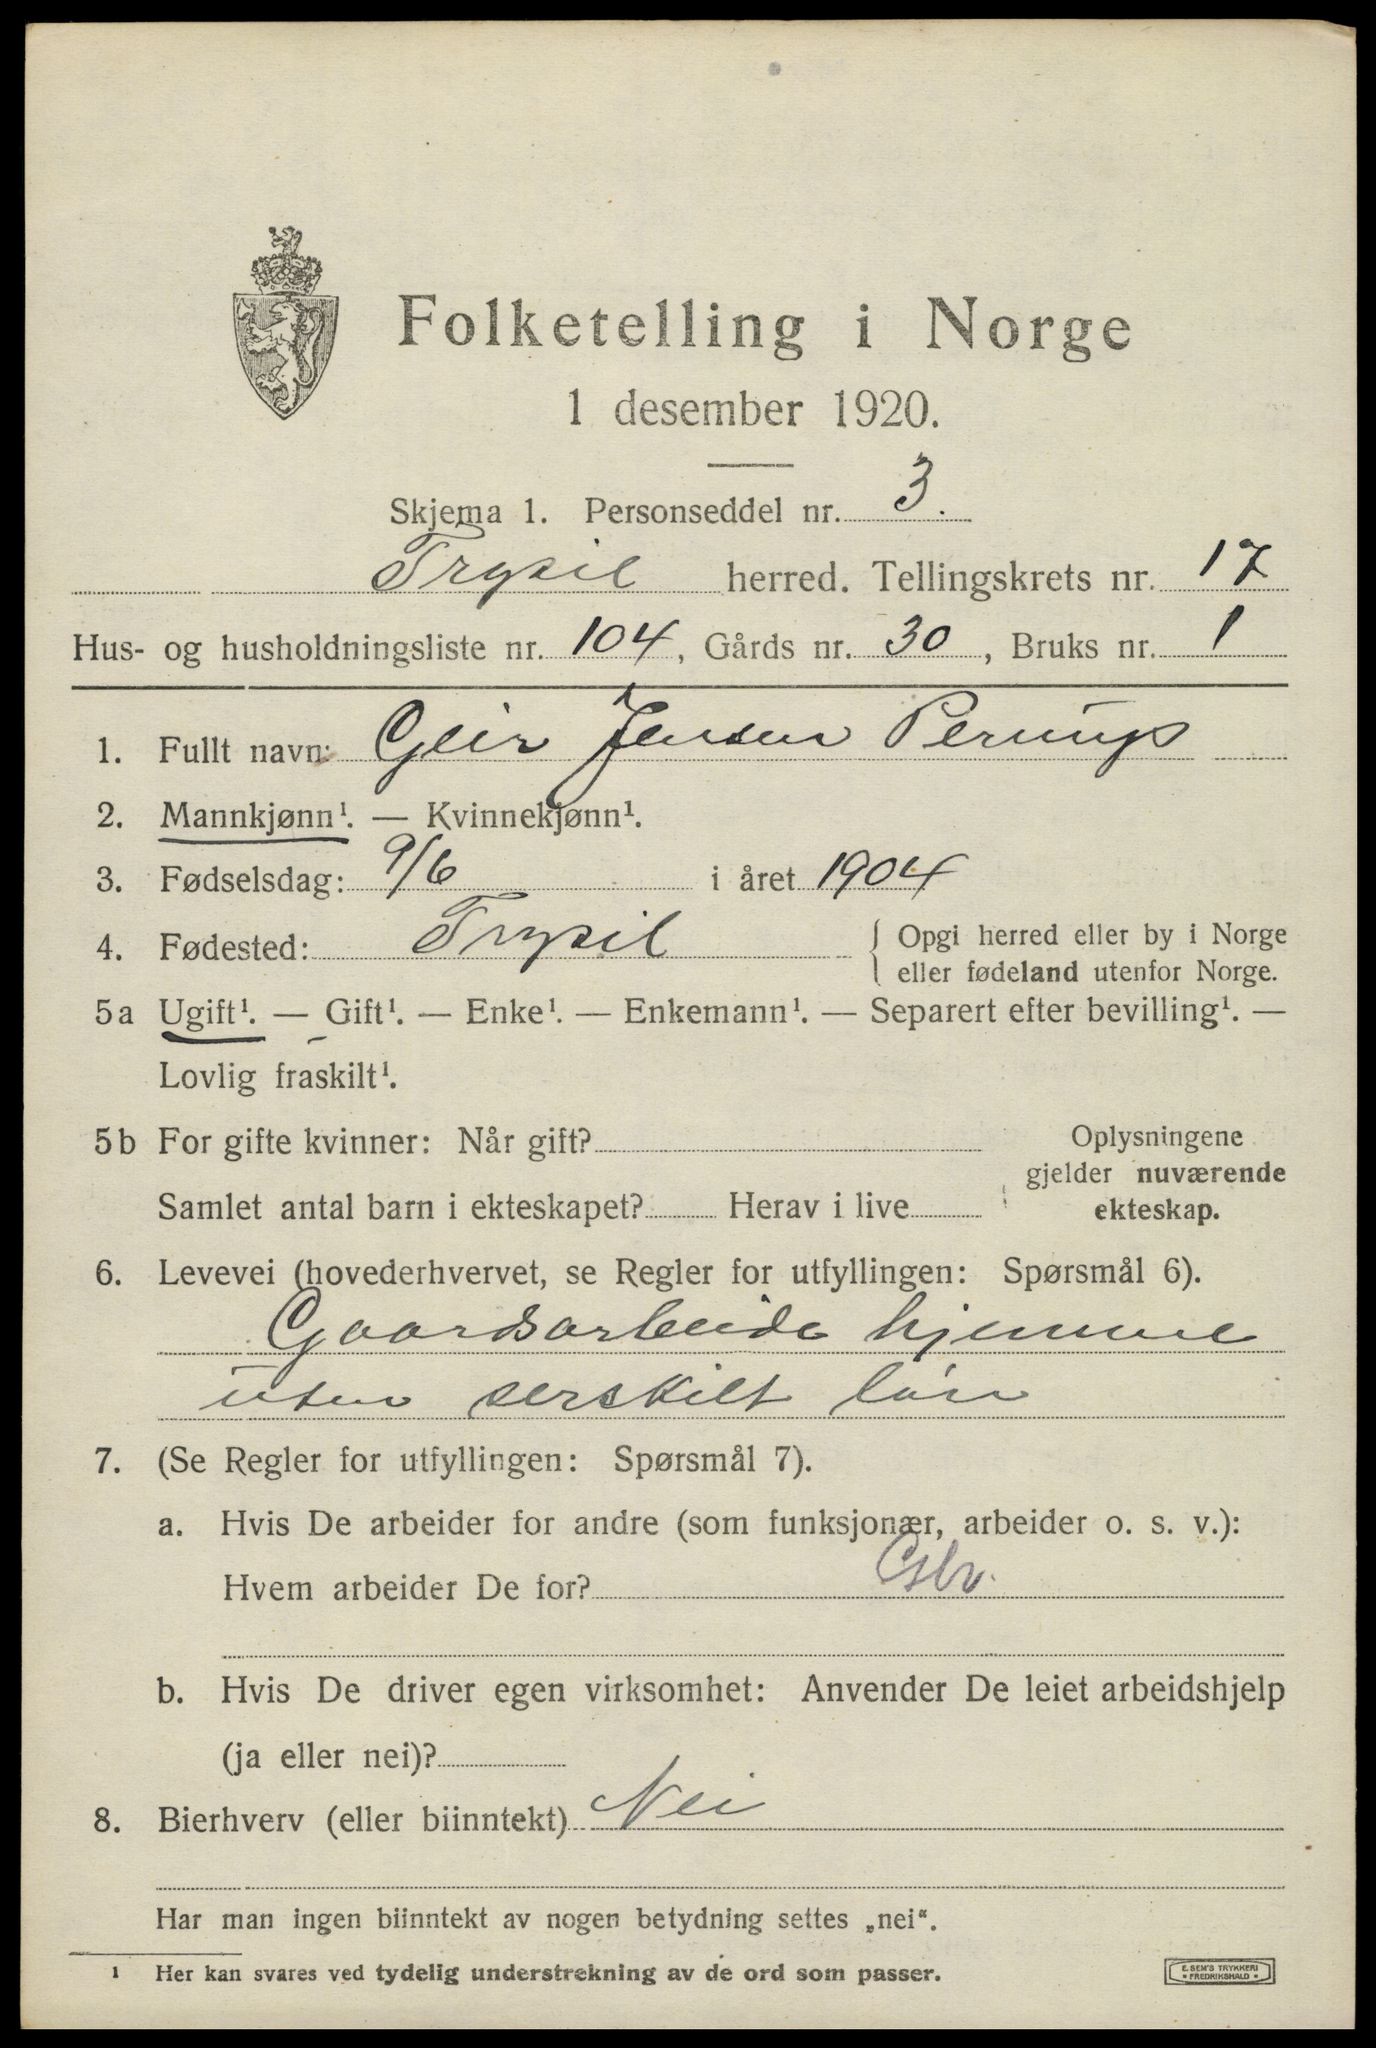 Folketelling i Norge
1 desember 1920.
Skjema 1. Personseddel nr. 3.
Trysil herred. Tellingskrets nr. 17
Hus- og husholdningsliste nr. 104, Gårds nr. 30, Bruks nr. 1
1. Fullt navn: Geir Jensen
2. Mannkjønn¹. — Kvinnekjønn¹.
3. Fødselsdag: 9/6 i året 1904
4. Fødested: Trysil { Opgi herred eller by i Norge
eller fødeland utenfor Norge.
5a Ugift¹. — Gift¹. — Enke¹. — Enkemann¹. — Separert efter bevilling¹. —
Lovlig fraskilt¹.
5b For gifte kvinner: Når gift?
Samlet antal barn i ekteskapet? Herav i live
Oplysningene
gjelder nuværende
ekteskap.
6. Levevei (hovederhvervet, se Regler for utfyllingen: Spørsmål 6).
Gaardsarbeide hjemme
uten serskilt løn
7. (Se Regler for utfyllingen: Spørsmål 7).
a. Hvis De arbeider for andre (som funksjonær, arbeider o. s. v.):
Hvem arbeider De for?
b. Hvis De driver egen virksomhet: Anvender De leiet arbeidshjelp
(ja eller nei)?
8. Bierhverv (eller biinntekt) Nei
Har man ingen biinntekt av nogen betydning settes „nei“.
¹ Her kan svares ved tydelig understrekning av de ord som passer.
E. SEM'S TRYKKERI
• FREDRIKSHALD •